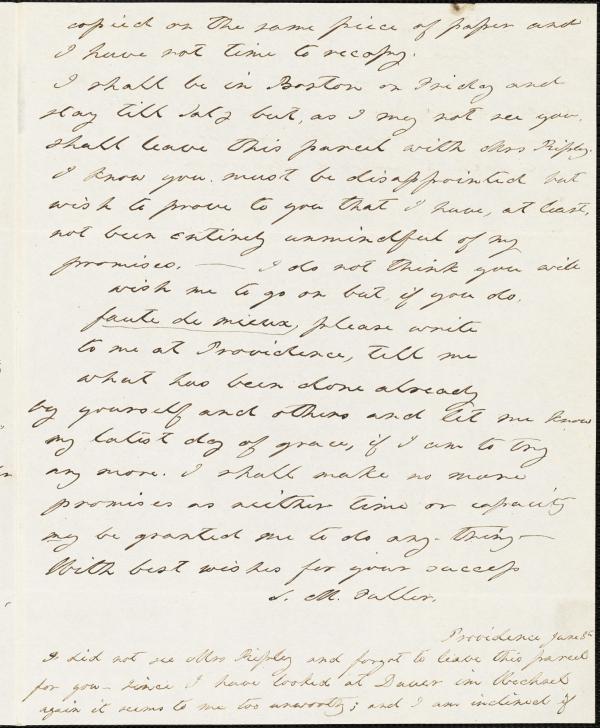 copied on the same piece of paper and
I have not time to recopy.
I shall be in Boston on Friday and
stay till Saty but, as I may not see you,
shall leave this parcel with Mrs Ripley.
I know you must be disappointed but
wish to prove to you that I have, at least,
not been entirely unmindful of my
promises. — I do not think you will
wish me to go on but if you do,
faute de mieux, please write
to me at Providence, tell me
what has been done already
by yourself and others and let me know
my latest day of grace, if I am to try
any more. I shall make no more
promises as neither time or capacity
may be granted me to do any-thing—
With best wishes for your success
S. M. Fuller.
Providence June 8th
I did not see Mrs Ripley and forgot to leave this parcel
for you— Since I have looked at Dauer im Wechsel
again it seems to me too unworthy; and I am inclined if